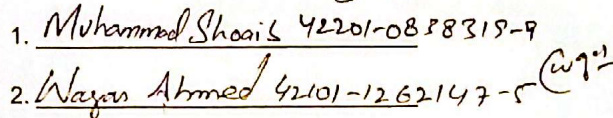 1. Muhammad Shoaib 42201-0838319-9
2. Waqas Ahmed 42101-1262147-5